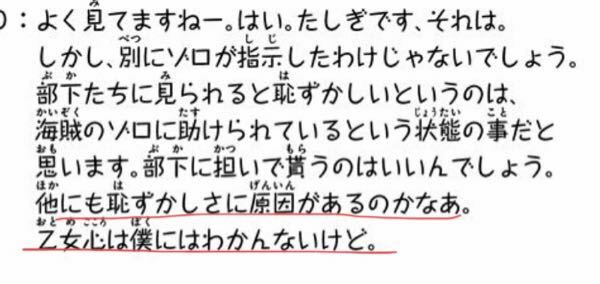 O：よく見てますねー。はい。たしぎです、それは。
しかし、別にゾロが指示したわけじゃないでしょう。
部下たちに見られると恥ずかしいというのは、
海賊のゾロに助けられているという状態の事だと
思います。部下に担いで貰うのはいいんでしょう。
他にも恥ずかしさに原因があるのかなあ。
乙女心は僕にはわかんないけど。